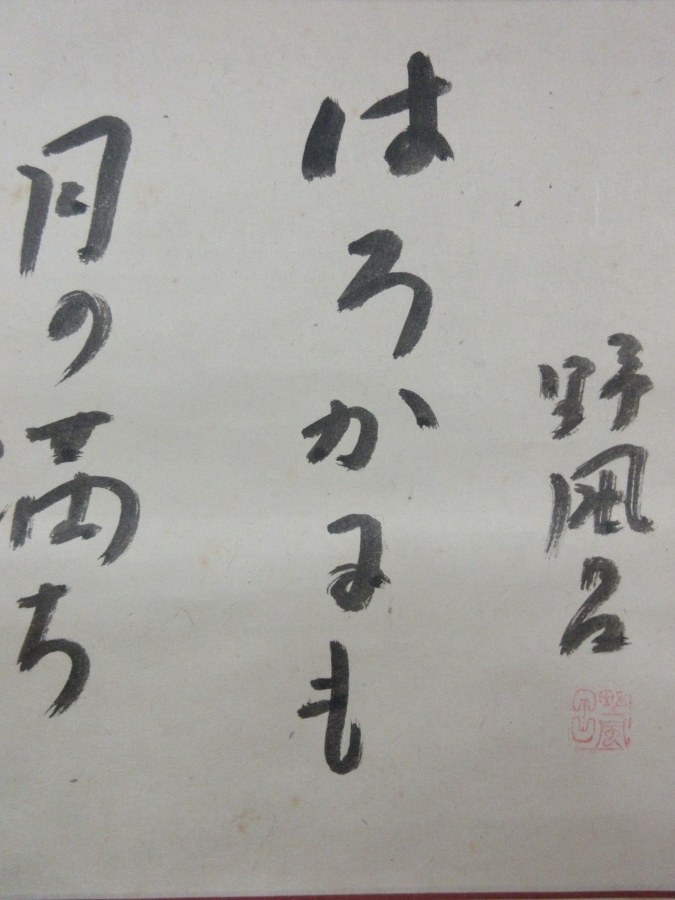 月の満ち
はろかにも
野風呂